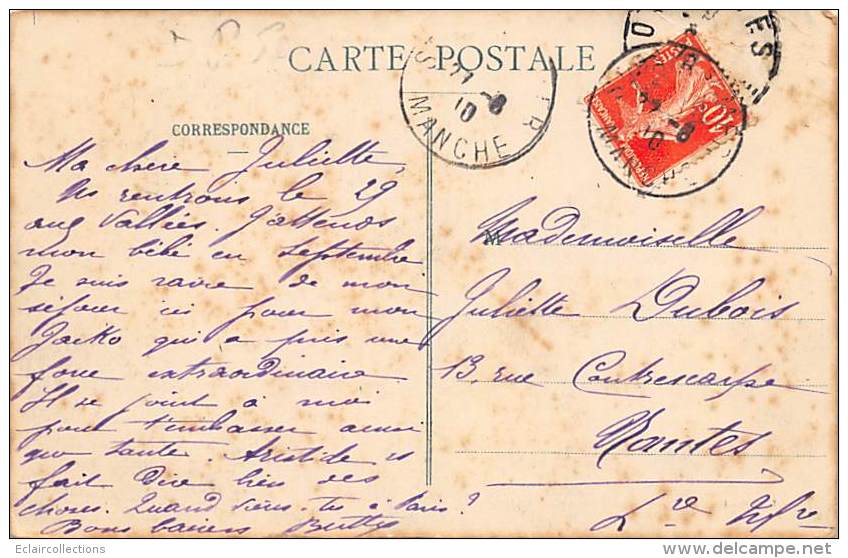 CARTE POSTALE
CORRESPONDANCE
Ma chère Juliette,
Ns rentrons le 29
aux Vallées. J'attends
mon bébé en septembre
Je suis ravie de mon
séjour ici pour mon
Jacko qui a pris une
force extraordinaire
Il se joint à moi
pour t'embrasser ainsi
que tante. Aristide
fait dire bien des
choses. Quand viens-tu à Paris?
Bons baisers
Mademoiselle
Juliette Dubois
13, rue Contrescarpe
Nantes
Lre Infre
MANCHE
10
Eclaircollections
www.delcampe.net